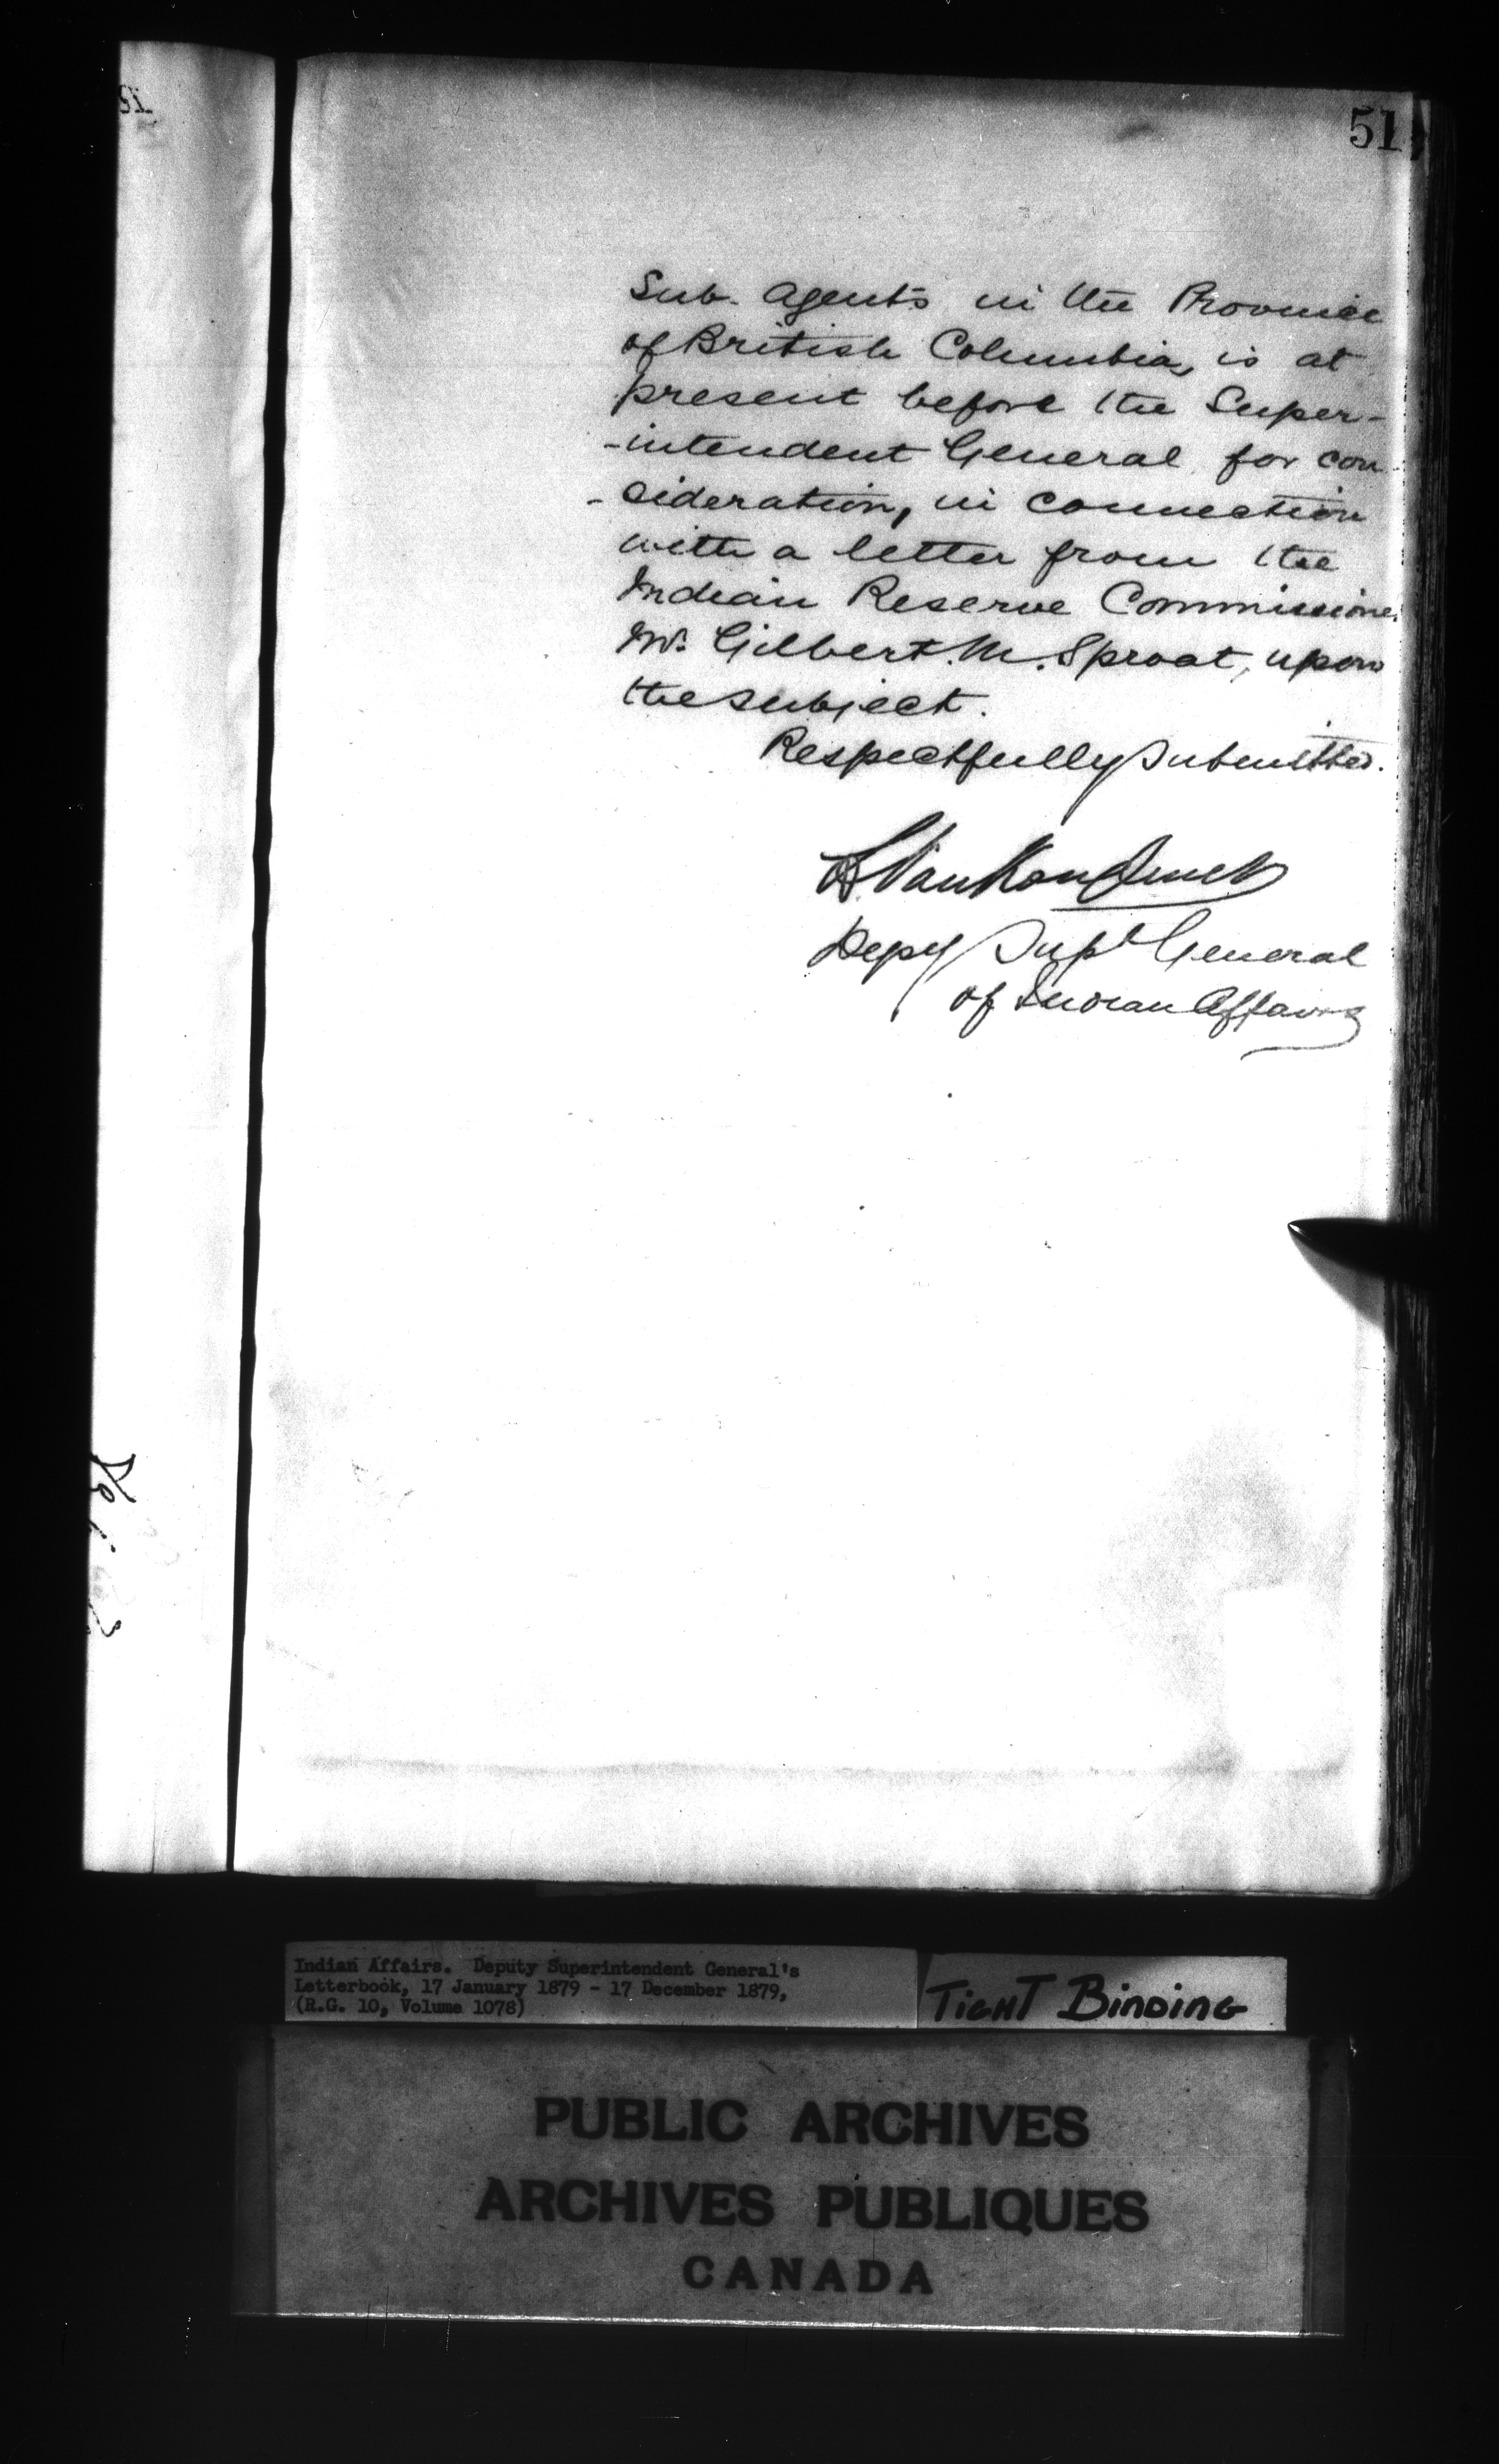 51
Sub. Agents in the Province
of British Columbia, is at
present before the Super-
-intendent General for con-
-sideration, in connection
with a letter from the
Indian Reserve Commissioner
Mr. Gilbert. M. Sproat, upon
the subject.
Respectfully Submitted.
L VanKoughnet
Depy Supt General
of Indian Affairs
Indian Affairs. Deputy Superintendent General's
Letterbook, 17 January 1879 - 17 December 1879,
(R.G. 10, Volume 1078)
TIGHT BINDING
PUBLIC ARCHIVES
ARCHIVES PUBLIQUES
CANADA